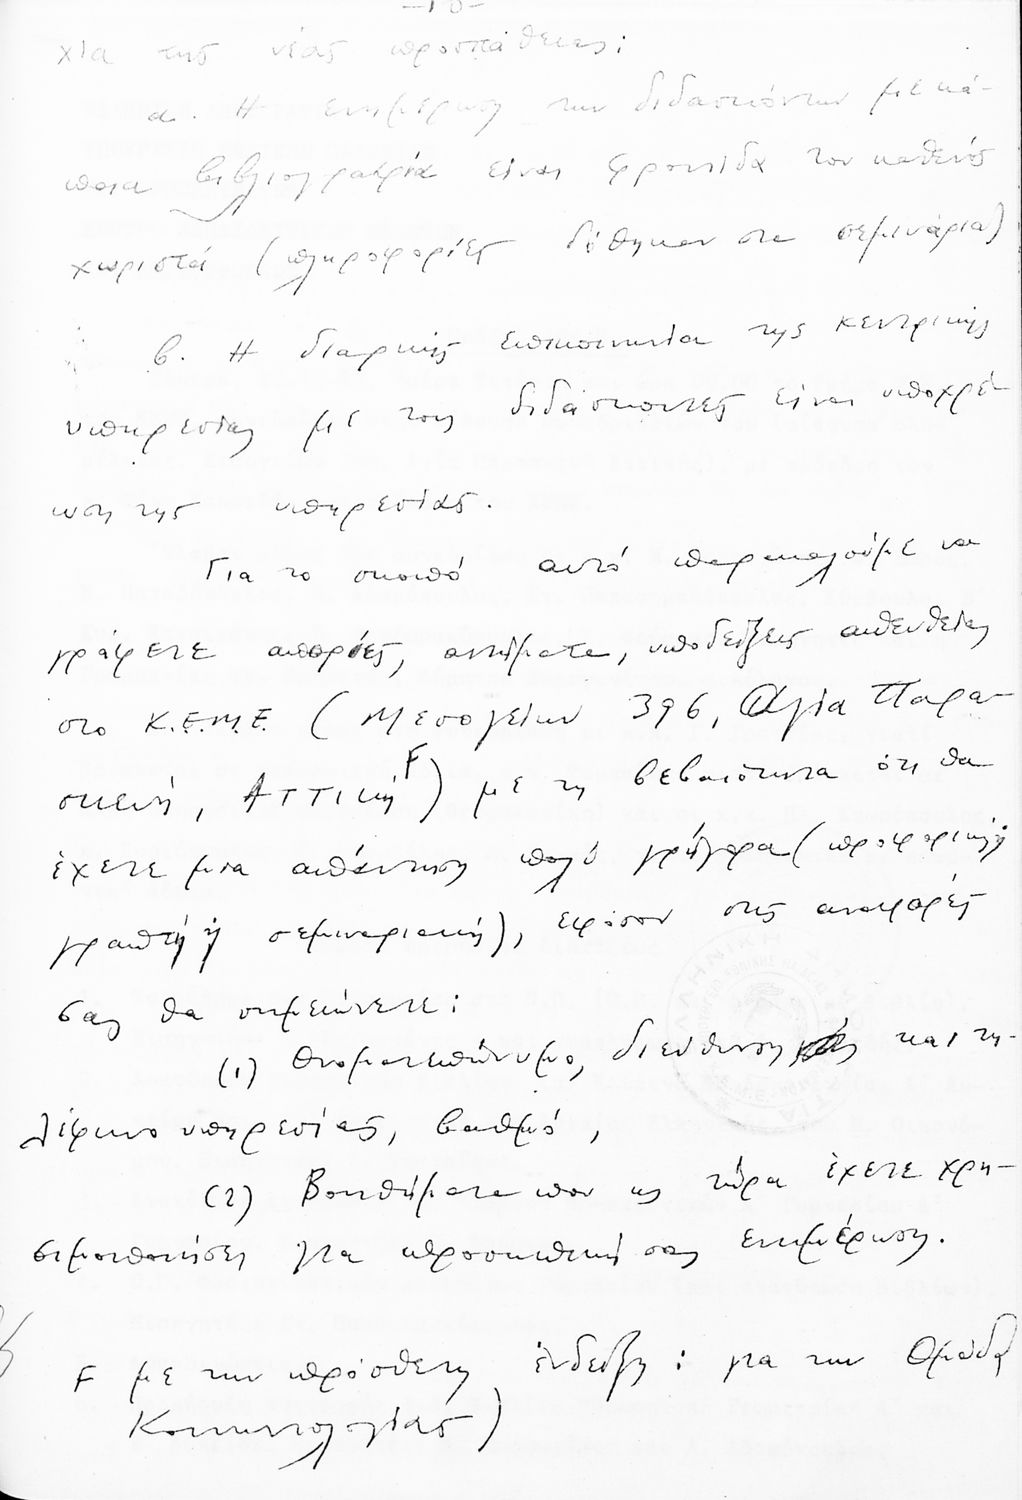 -10-
χία της νέας προσπάθειας:
α. Η ενημέρωση των διδασκόντων με κά-
ποια βιβλιογραφία είναι φροντίδα του καθενός
χωριστά (πληροφορίες δόθηκαν στα σεμινάρια)
β. Η διαρκής επικοινωνία της κεντρικής
υπηρεσίας με τους διδάσκοντες είναι υποχρέ-
ωση της υπηρεσίας.
Για το σκοπό αυτό παρακαλούμε να
γράφετε απορίες, αιτήματα, υποδείξεις απευθείας
στο Κ.Ε.Μ.Ε. (Μεσογείων 396, Αγία Παρα-
σκευή, Αττική F) με τη βεβαιότητα ότι θα
έχετε μια απάντηση πολύ γρήγορα (προφορική ή
γραπτή ή σεμιναριακή), εφόσον στις αναφορές
σας θα σημειώνετε:
(1) Ονοματεπώνυμο, διεύθυνση και τη-
λέφωνο υπηρεσίας, βαθμό,
(2) Βοηθήματα που ως τώρα έχετε χρη-
σιμοποιήσει για προσωπική σας ενημέρωση.
F με την πρόσθετη ένδειξη: για την Ομάδα
Κοινωνιολογίας)